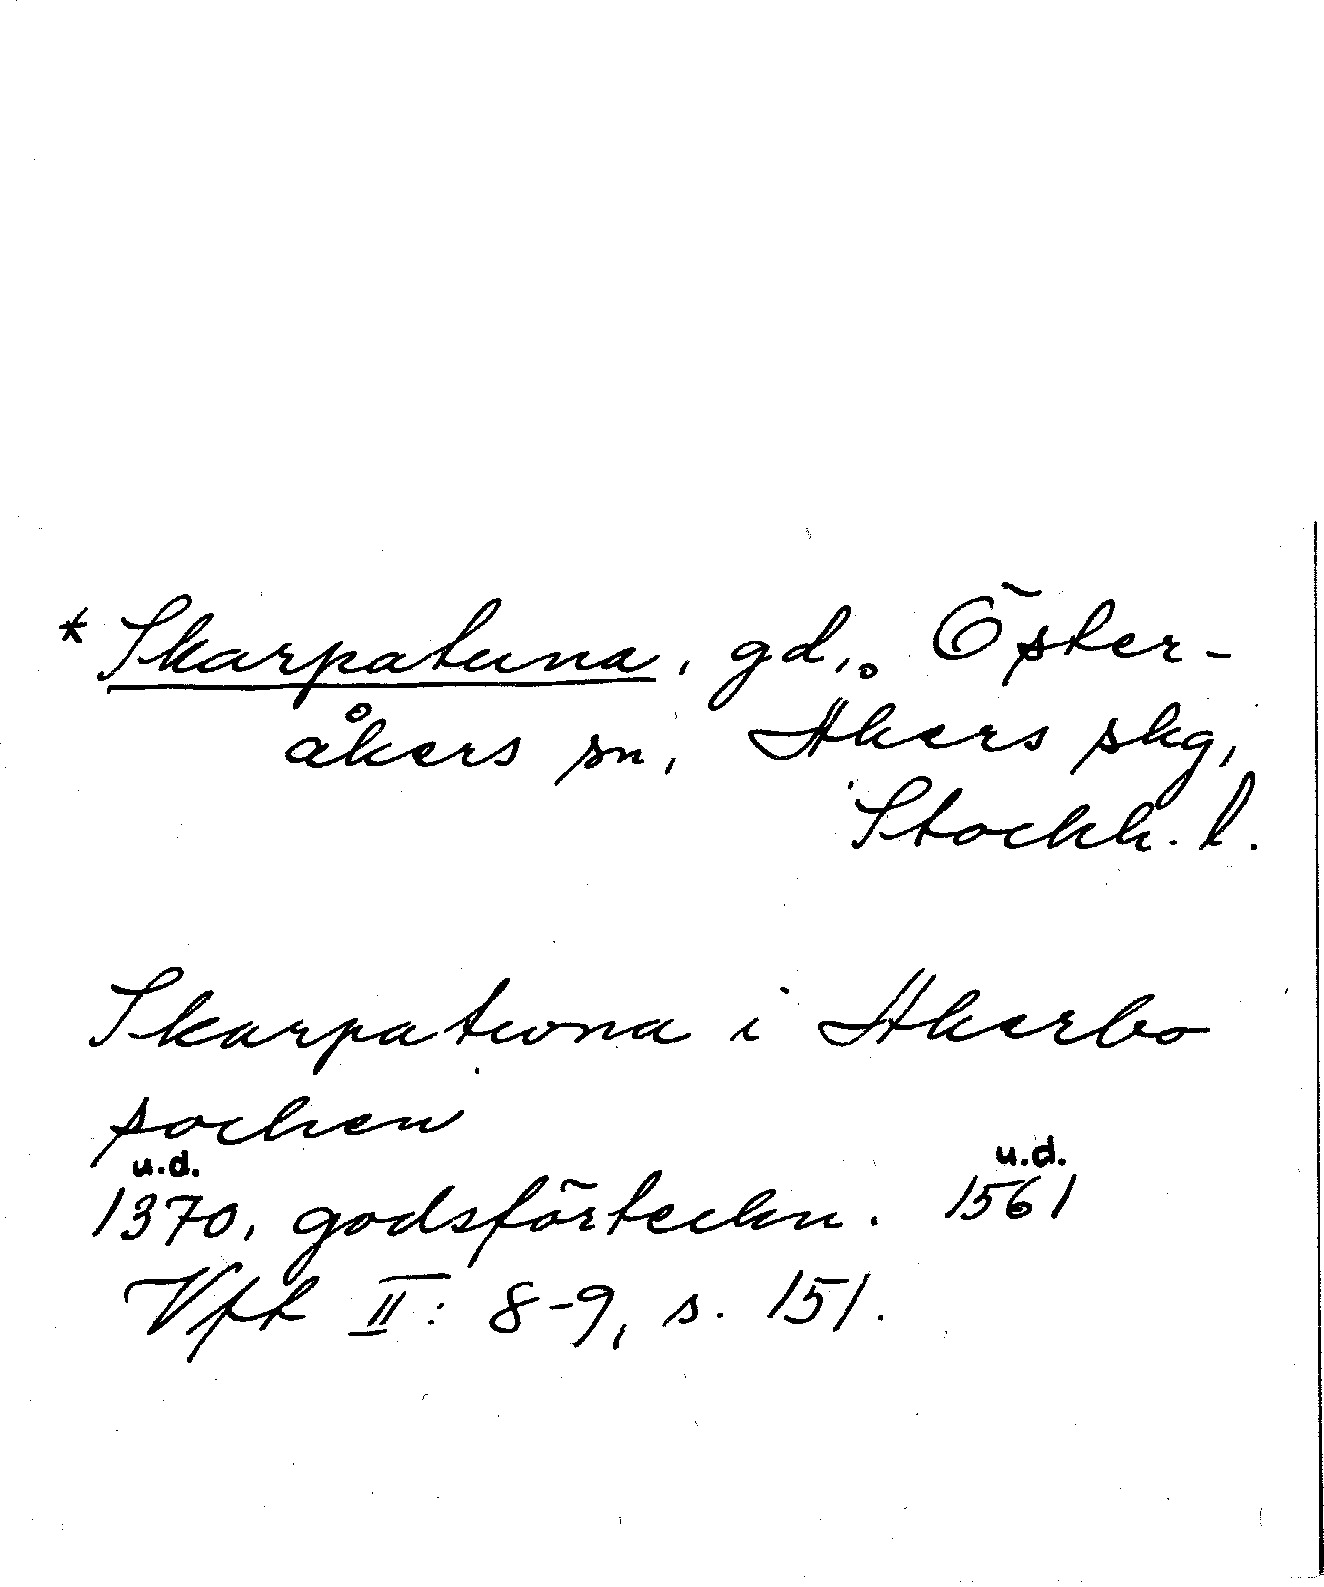 * Skarpatuna, gd, Öster-
åkers sn, Åkers skg,
Stockh. l.
Skarpatuna i Akerbo
sochen
u.d. u.d.
1370, godsförteckn. 1561
Vft II: 8-9, s. 151.